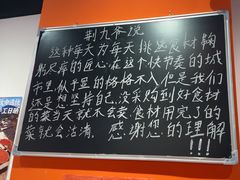 荆九爷说
这种每天为每天挑选食材鞠
躬尽瘁的匠心在这个快节奏的城
市里似乎显的格格不入但是我们
还是想坚持自己没采购到好食材
的菜当天就不会卖食材用完了的
菜就会沽清 感谢您的理解
!!!